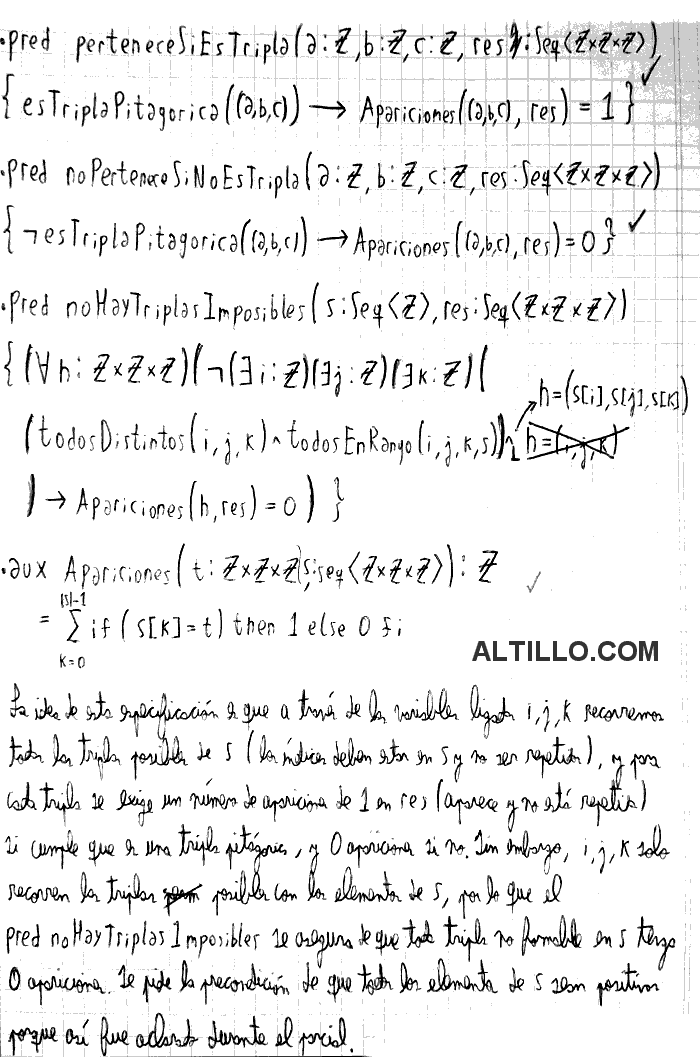 •pred perteneceSiEsTripla(a:ℤ, b:ℤ, c:ℤ, res:Seq⟨ℤ×ℤ×ℤ⟩)
{esTriplaPitagorica((a,b,c)) → Apariciones((a,b,c), res) = 1} ✓
•pred noPerteneceSiNoEsTripla(a:ℤ, b:ℤ, c:ℤ, res:Seq⟨ℤ×ℤ×ℤ⟩)
{¬esTriplaPitagorica((a,b,c)) → Apariciones((a,b,c), res) = 0} ✓
•pred noHayTriplasImposibles(s:Seq⟨ℤ⟩, res:Seq⟨ℤ×ℤ×ℤ⟩)
{(∀h: ℤ×ℤ×ℤ)(¬(∃i:ℤ)(∃j:ℤ)(∃k:ℤ)(
h=(s[i],s[j],s[k])
(todosDistintos(i,j,k) ∧ todosEnRango(i,j,k,s)) ∧ h=(i,j,k)
) → Apariciones(h,res) = 0) }
•aux Apariciones(t: ℤ×ℤ×ℤ, s:seq⟨ℤ×ℤ×ℤ⟩): ℤ ✓
|s|-1
= ∑ if (s[k]=t) then 1 else 0 fi
k=0
ALTILLO.COM
La idea de esta especificación es que a través de las variables ligadas i, j, k recorremos
todas las triplas posibles de s (los índices deben estar en s y no ser repetidos), y para
cada tripla se exige un número de apariciones de 1 en res (aparece y no está repetida)
si cumple que es una tripla pitágorica, y 0 apariciones si no. Sin embargo, i, j, k solo
recorren las triplas posibles con los elementos de s, por lo que el
pred noHayTriplasImposibles se asegura de que toda tripla no formable en s tenga
0 apariciones. Se pide la precondición de que todos los elementos de s sean positivos
porque así fue aclarado durante el parcial.